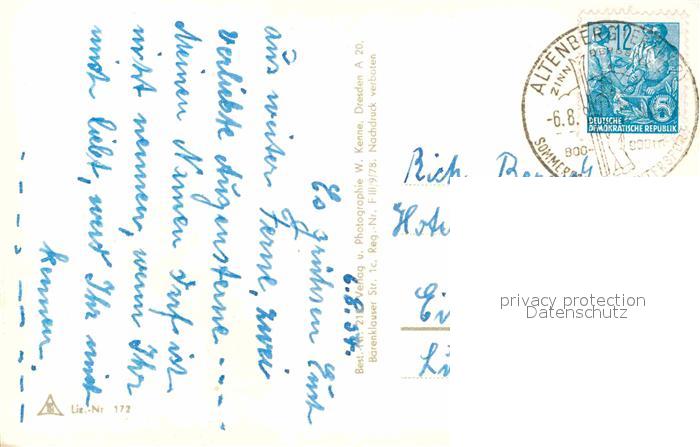 6.8.54.
Es grüßen Euch
aus weiter Ferne, zwei
verliebte Augensterne - - - -
Meinen Namen darf ich
nicht nennen, wenn Ihr
mich liebt, werd Ihr mich
kennen.
Best.-Nr. 21 Verlag u. Photographie W. Kenne, Dresden A 20,
Barenklauser Str. 1c, Reg.-Nr. F III/9/78. Nachdruck verboten
Liz.-Nr 172
ALTENBERG
ZINN
-6.8.
800-
SOMMER
12
DEUTSCHE
DEMOKRATISCHE REPUBLIK
Rich.
privacy protection
Datenschutz